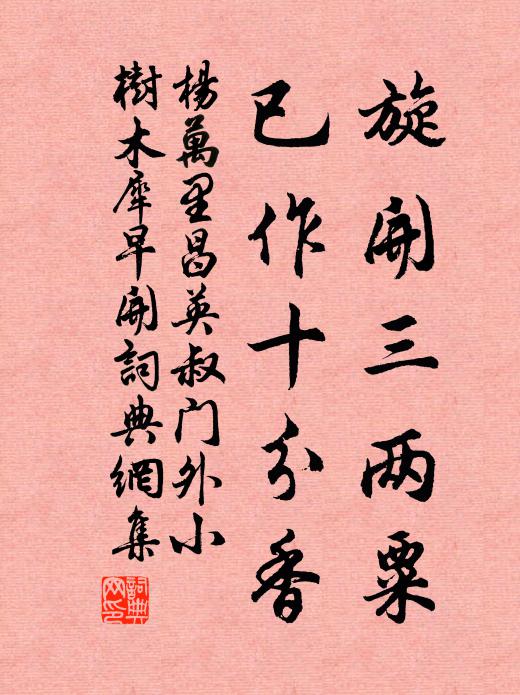 旋開三两粟
已作十分香
楊萬里昌英叔门外小
樹木犀早開詞典網集
詞典网印